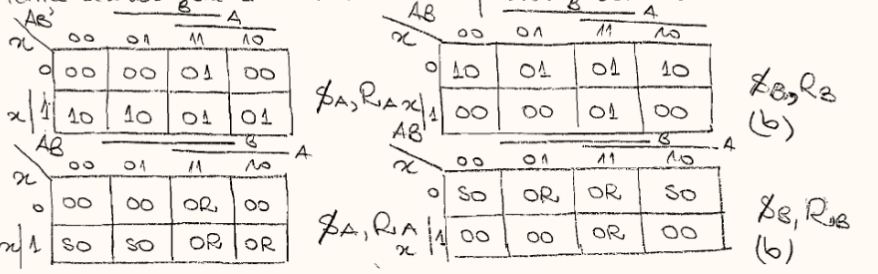 B
A
AB
x 00 01 11 10
0 00 00 01 00
x 1 10 10 01 01
$A, RA
B
A
AB
x 00 01 11 10
0 10 01 01 10
x 1 00 00 01 00
$B, RB
(b)
B
A
AB
x 00 01 11 10
0 00 00 0R 00
x 1 S0 S0 0R 0R
$A, RA
B
A
AB
x 00 01 11 10
0 S0 0R 0R S0
x 1 00 00 0R 00
$B, RB
(b)